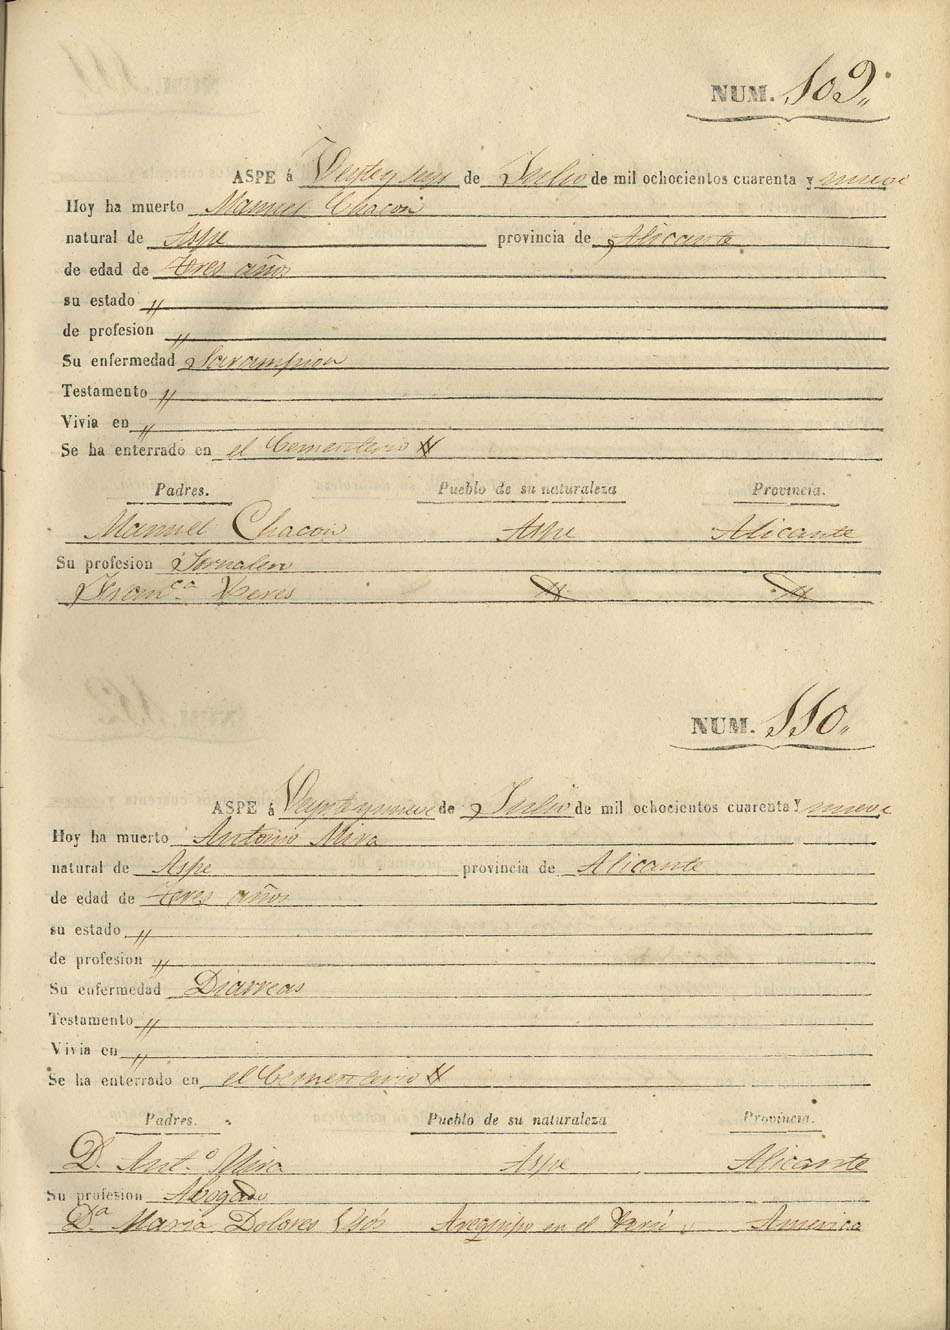 NUM. 109.,
ASPE á Veynteyseys de Julio de mil ochocientos cuarenta y nueve
Hoy ha muerto Manuel Chacon
natural de Aspe provincia de Alicante
de edad de tres años
su estado "
de profesion "
Su enfermedad Sarampion
Testamento "
Vivia en "
Se ha enterrado en el Cementerio
Padres. Pueblo de su naturaleza Provincia.
Manuel Chacon Aspe Alicante
Su profesion Jornalero
Franca. "  "
NUM. 110.,
ASPE á Veynteynueve de Julio de mil ochocientos cuarenta y nueve
Hoy ha muerto Antonio Mira
natural de Aspe provincia de Alicante
de edad de tres años
su estado "
de profesion "
Su enfermedad Diarreas
Testamento "
Vivia en "
Se ha enterrado en el Cementerio
Padres. Pueblo de su naturaleza Provincia.
D. Anto. Mira Aspe Alicante
Su profesion Abogado
Da. Maria Dolores Arequipa en el Perú America